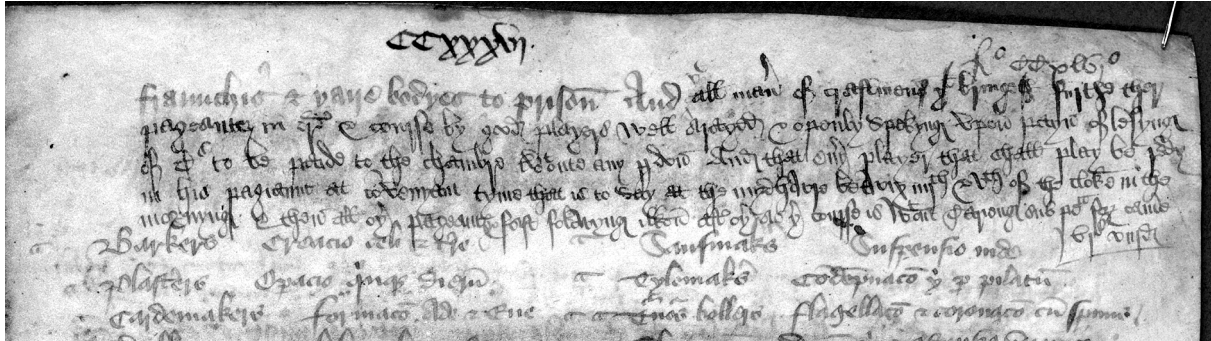 CCxxxvi.
fo CCxlvo
ffraunchis & þaire bodyes to prison And all man' of craftmen þt bringeth furthe ther
pageantez in ordr & course by good players well arayed & openly spekyng vpon payn of lesyng
of Cs to be paide to the chambre without any pdon And that eu'y player that shall play be redy
in his pagiaunt at convenyant tyme that is to say at the mydhowre betwix iiijth & vth of the cloke in the
mornyng & then all oþer pageantz fast folowyng ilkon aftr oþer as þer course is wtout Tarieng sub pe' fac' camere
vis viijd
Barkers Creacio celi & tre Sausmaks Suspensio iude
Plasterers Opacio quinqz dierum Tylemaks Condempnaco xpi p pilatu
Cardemakers formaco Ade & Eue Turnos bollers flagellaco & coronaco cu spinis